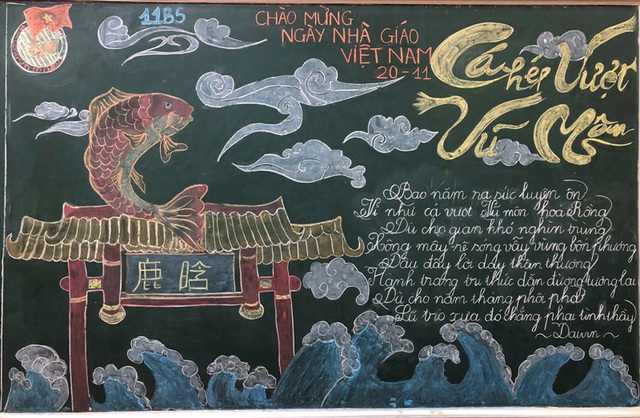 11B5
CHÀO MỪNG
NGÀY NHÀ GIÁO
VIỆT NAM
20-11
Cá chép Vượt
Vũ - Môn
鹿晗
Bao năm ra sức luyện ôn
Ví như cá vượt Vũ môn hóa Rồng
Dù cho gian khó nghìn trùng
Rồng mây rẽ sóng vẫy vùng bốn phương
Dấu đây lời dạy thân thương
Hành trang tri thức dẫn đường tương lai
Dù cho năm tháng phôi phai
Lũ trò xưa đó chẳng phai tình thầy
~ Dawn ~